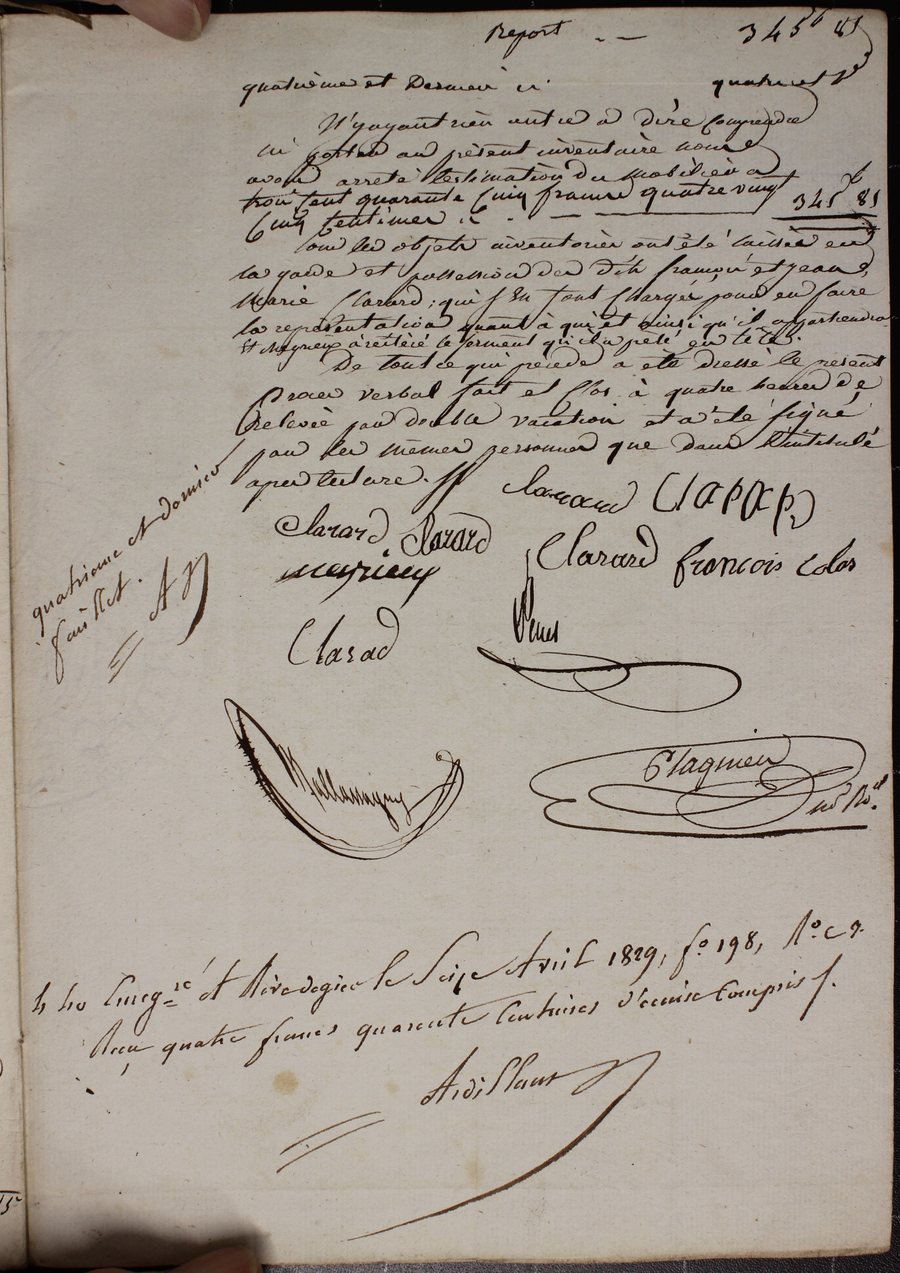 Report -- 345 f 85
quatrième et Dernier ci quatre et d.er
N'yayant rien autre a dire Comprendre
ni porter au présent inventaire nous
avons arreté l'estimation du Mobilier a
trois Cent quarante Cinq francs quatre vingt
Cinq Centimes ci - - 345 f 85
Tous les objets inventoriés ont été laissés en
la garde et possession des dits françois et jean
Marie Clarard, qui s'En sont Chargés pour en faire
la representation quant à qui et ainsi qu'il appartiendra
et Meyrieux a reitéré le serment qu'il a preté en tête.
De tout ce qui précède a été dressé le présent
Procès verbal fait et Clos à quatre heures de
Relevée par double vacation et a été signé
par les mêmes personnes que dans l'intitulé
après lecture.
quatrieme et dernier
feuillet.
Clarard Clarard
Clarard francois colas
meyrieux
Clarad
Plagnieu
no. Ro.al
4 40 Enreg.ré A Rivedegier le Seize Avril 1829, f.o 198, R.o c 7.
Reçu quatre francs quarante Centimes d'ecime Compris
Ardillaut